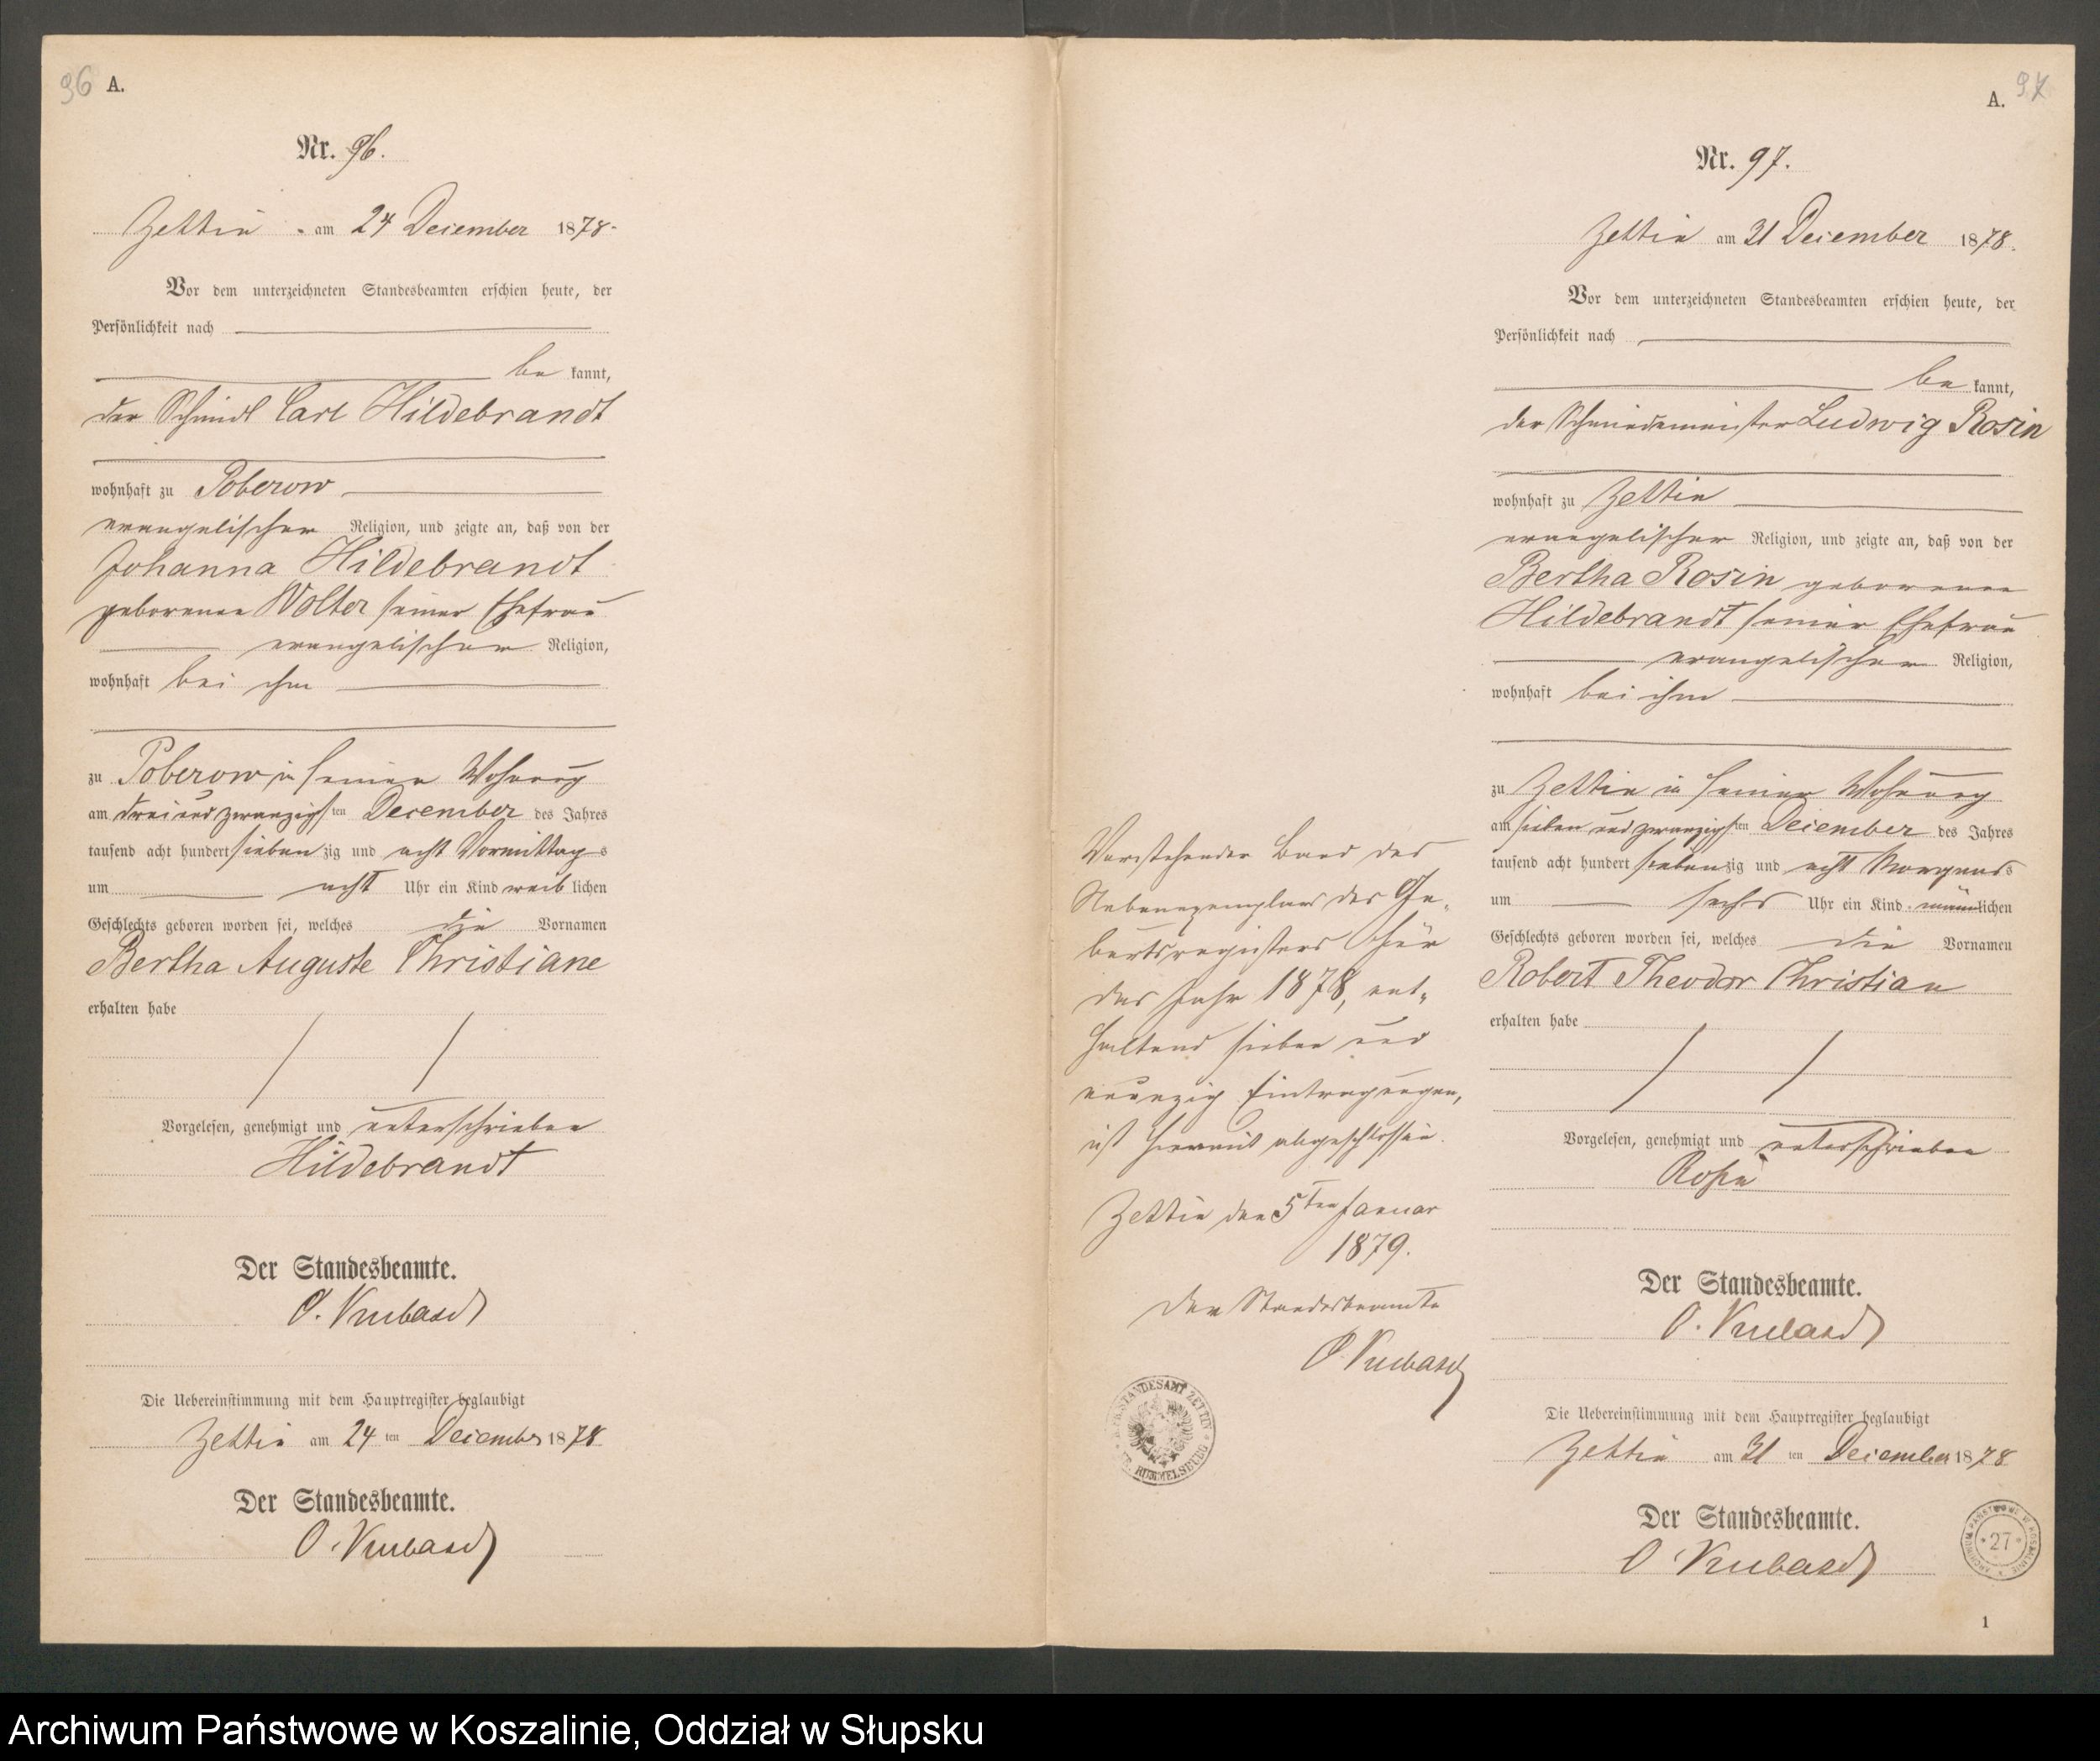 96 A.
Nr. 96.
Zettin am 24 December 1878.
Vor dem unterzeichneten Standesbeamten erschien heute, der
Persönlichkeit nach
be kannt,
der Schmidt Carl Hildebrandt
wohnhaft zu Poberow
evangelischer Religion, und zeigte an, daß von der
Johanna Hildebrandt
geborenen Wolter seiner Ehefrau
evangelischer Religion,
wohnhaft bei ihm
zu Poberow in seiner Wohnung
am drei und zwanzigsten December des Jahres
tausend acht hundert siebenzig und acht Vormittags
um acht Uhr ein Kind weiblichen
Geschlechts geboren worden sei, welches die Vornamen
Bertha Auguste Christiane
erhalten habe
Vorgelesen, genehmigt und unterschrieben
Hildebrandt
Der Standesbeamte.
O.
Die Uebereinstimmung mit dem Hauptregister beglaubigt
Zettin am 24 ten December 1878
Der Standesbeamte.
O.
Vorstehender Band des
Nebenexemplars des Ge-
burtsregisters für
das Jahr 1878, ent-
haltend sieben und
neunzig Eintragungen,
ist hiermit abgeschlossen.
Zettin den 5ten Januar
1879.
Der Standesbeamte
O.
STANDESAMT ZETTIN
KR. RUMMELSBURG
A. 97
Nr. 97.
Zettin am 31 December 1878.
Vor dem unterzeichneten Standesbeamten erschien heute, der
Persönlichkeit nach
be kannt,
der Schmiedemeister Ludwig Rosin
wohnhaft zu Zettin
evangelischer Religion, und zeigte an, daß von der
Bertha Rosin geborenen
Hildebrandt seiner Ehefrau
evangelischer Religion,
wohnhaft bei ihm
zu Zettin in seiner Wohnung
am sieben und zwanzigsten December des Jahres
tausend acht hundert siebenzig und acht Morgens
um sechs Uhr ein Kind männlichen
Geschlechts geboren worden sei, welches die Vornamen
Robert Theodor Christian
erhalten habe
Vorgelesen, genehmigt und unterschrieben
Rosin
Der Standesbeamte.
O.
Die Uebereinstimmung mit dem Hauptregister beglaubigt
Zettin am 31 ten December 1878
Der Standesbeamte.
O.
ARCHIWUM PAŃSTWOWE W KOSZALINIE
27
1
Archiwum Państwowe w Koszalinie, Oddział w Słupsku